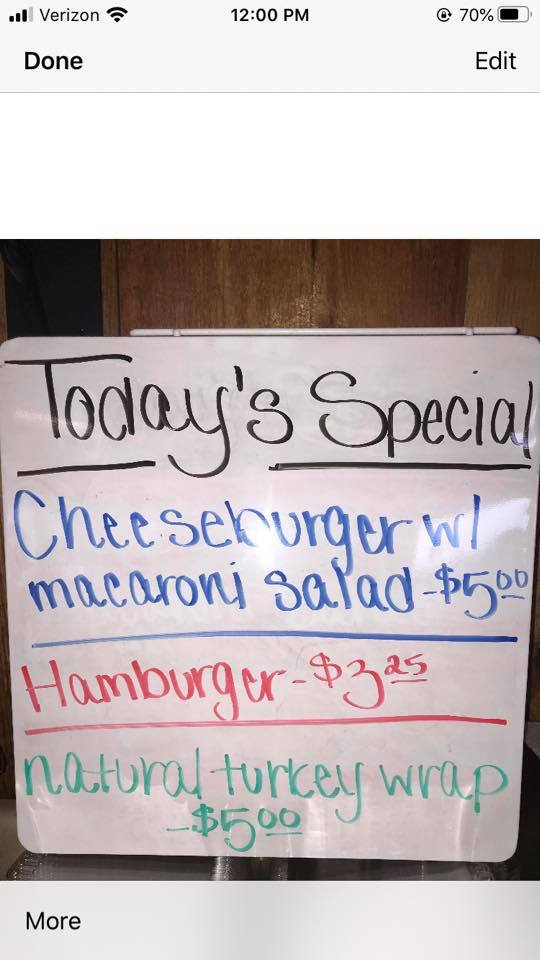 Verizon 12:00 PM 70%
Done Edit
Today's Special
Cheeseburger w/
macaroni salad - $5.00
Hamburger - $3.25
natural turkey wrap
- $5.00
More